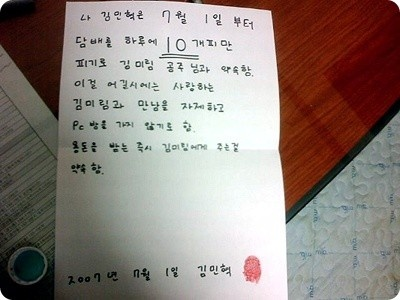 나 김민혁은 7월 1일 부터
담배를 하루에 10 개피만
피기로 김미림 공주님과 약속함.
이걸 어길시에는 사랑하는
김미림과 만남을 자제하고
Pc방을 가지 않기로 함.
용돈을 받는 즉시 김미림에게 주는걸
약속함.
2007년 7월 1일 김민혁